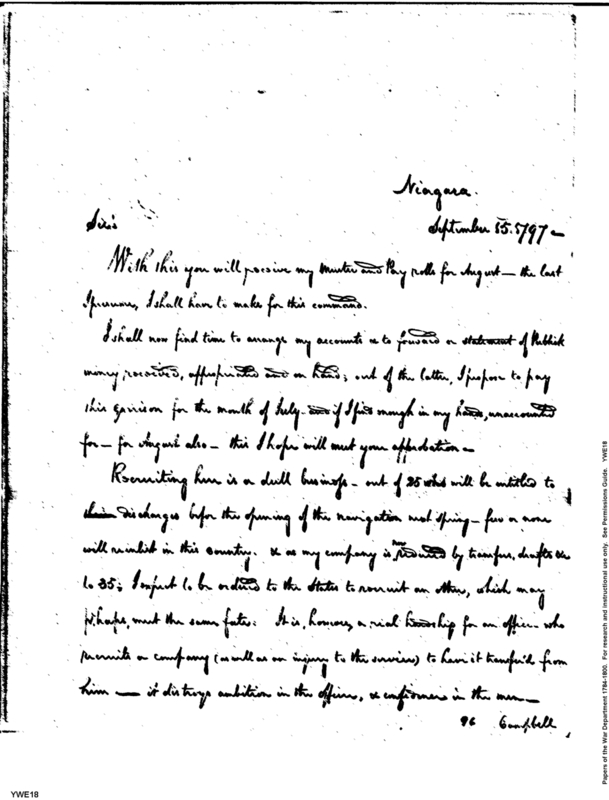 Niagara.
September 15. 1797 –
Sir
With this you will receive my Muster and Pay rolls for August — the last
I presume, I shall have to make for this command.
I shall now find time to arrange my accounts & to forward a statement of Publick
money received, appropriated and on hand; out of the latter, I propose to pay
this garrison for the month of July – and if I find enough in my hands, unaccounted
for – for August also – this I hope will meet your approbation –
Recruiting here is a dull business – out of 25 who will be entitled to
their discharges before the opening of the navigation next spring – few or none
will reinlist in this country. & as my company is now reduced by transfers, drafts &c
to 35; I expect to be ordered to the States to recruit an other, which may
perhaps, meet the same fate. It is, however, a real hardship for an officer who
recruits a company (as well as an injury to the service) to have it transfer'd from
him — it distroys ambition in the officer, & confidence in the men –
Campbell
YWE18
Papers of the War Department 1784-1800. For research and instructional use only. See Permissions Guide. YWE18